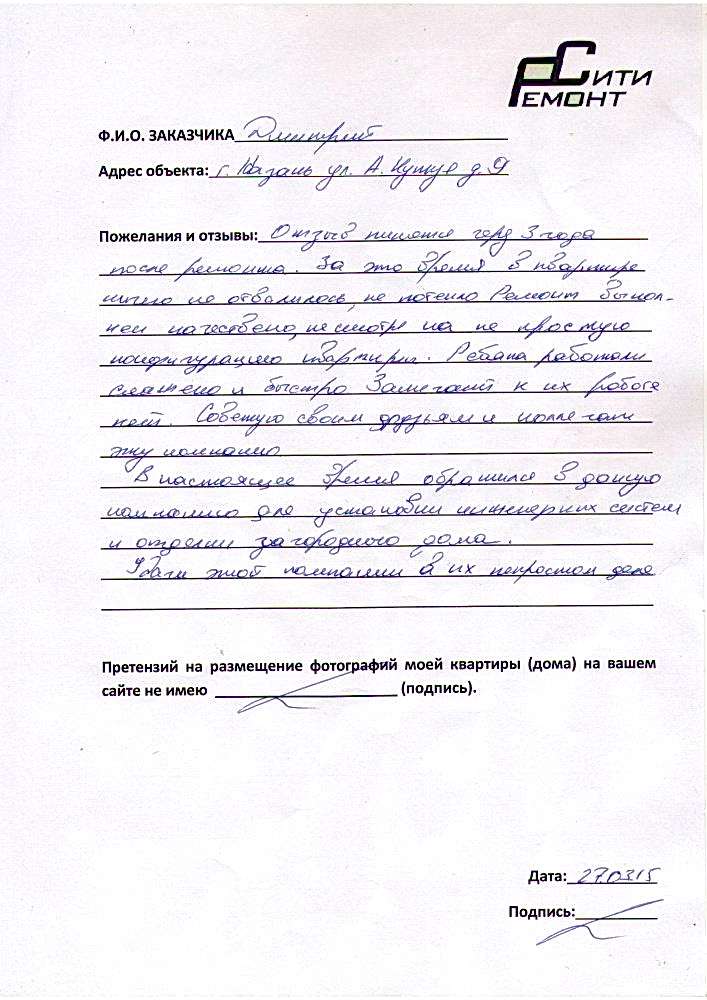 Сити
Ремонт
Ф.И.О. ЗАКАЗЧИКА Дмитрий
Адрес объекта: г. Казань ул. А. Кутуя д. 9
Пожелания и отзывы: Отзыв пишется через 3 года
после ремонта. За это время в квартире
ничего не отвалилось, не потекло Ремонт выпол-
нен качествено, несмотря на не простую
конфигурацию квартиры. Ребята работали
слажено и быстро Замечаний к их работе
нет. Советую своим друзьям и коллегам
эту компанию
В настоящее время обратился в даную
компанию для установки инженерных систем
и отделки загородного дома.
Удачи этой компании в их непростом деле
Претензий на размещение фотографий моей квартиры (дома) на вашем
сайте не имею (подпись).
Дата: 27.03.15
Подпись: